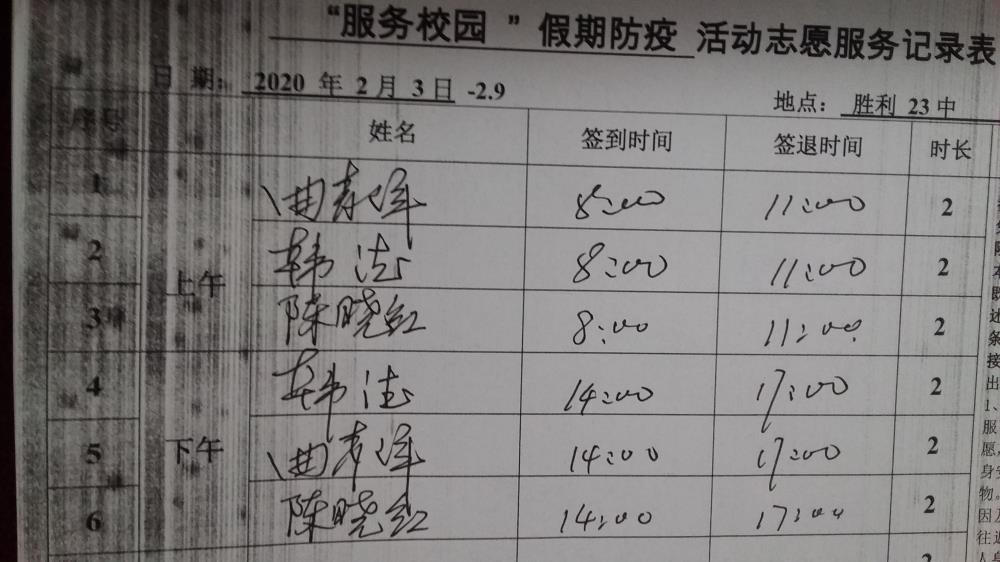 “服务校园 ”假期防疫 活动志愿服务记录表
日 期: 2020 年 2 月 3 日 -2.9
地点: 胜利 23 中
序号 姓名 签到时间 签退时间 时长
1 8:00 11:00 2
2 韩 8:00 11:00 2
上午
3 陈晓红 8:00 11:00 2
4 韩 14:00 17:00 2
下午
5 14:00 17:00 2
6 陈晓红 14:00 17:00 2
2
述
条
接
出
1、
服
愿
身安
物。
因及
往返
人身